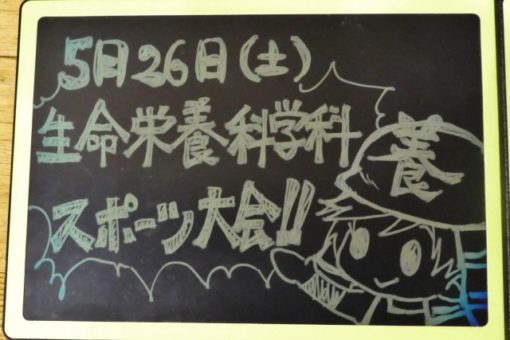 5月26日(土)
生命栄養科学科
スポーツ大会!!
養